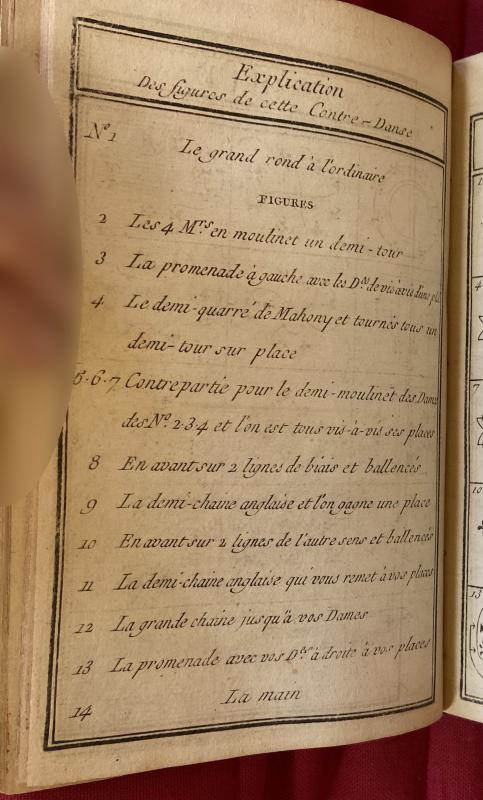 Explication
Des figures de cette Contre-Danse
Nº1 Le grand rond à l'ordinaire
FIGURES
2 Les 4 Mrs en moulinet un demi-tour
3 La promenade à gauche avec les Des de vis à vis d'une pl.
4 Le demi-quarré de Mahony et tournés tous un
demi-tour sur place
5·6·7 Contrepartie pour le demi-moulinet des Dames
des Nº 2·3·4 et l'on est tous vis-à-vis ses places
8 En avant sur 2 lignes de biais et ballencés
9 La demi-chaine anglaise et l'on gagne une place
10 En avant sur 2 lignes de l'autre sens et ballencés
11 La demi-chaine anglaise qui vous remet à vos places
12 La grande chaine jusqu'à vos Dames
13 La promenade avec vos Des à droite à vos places
14 La main
1
4
7
10
13